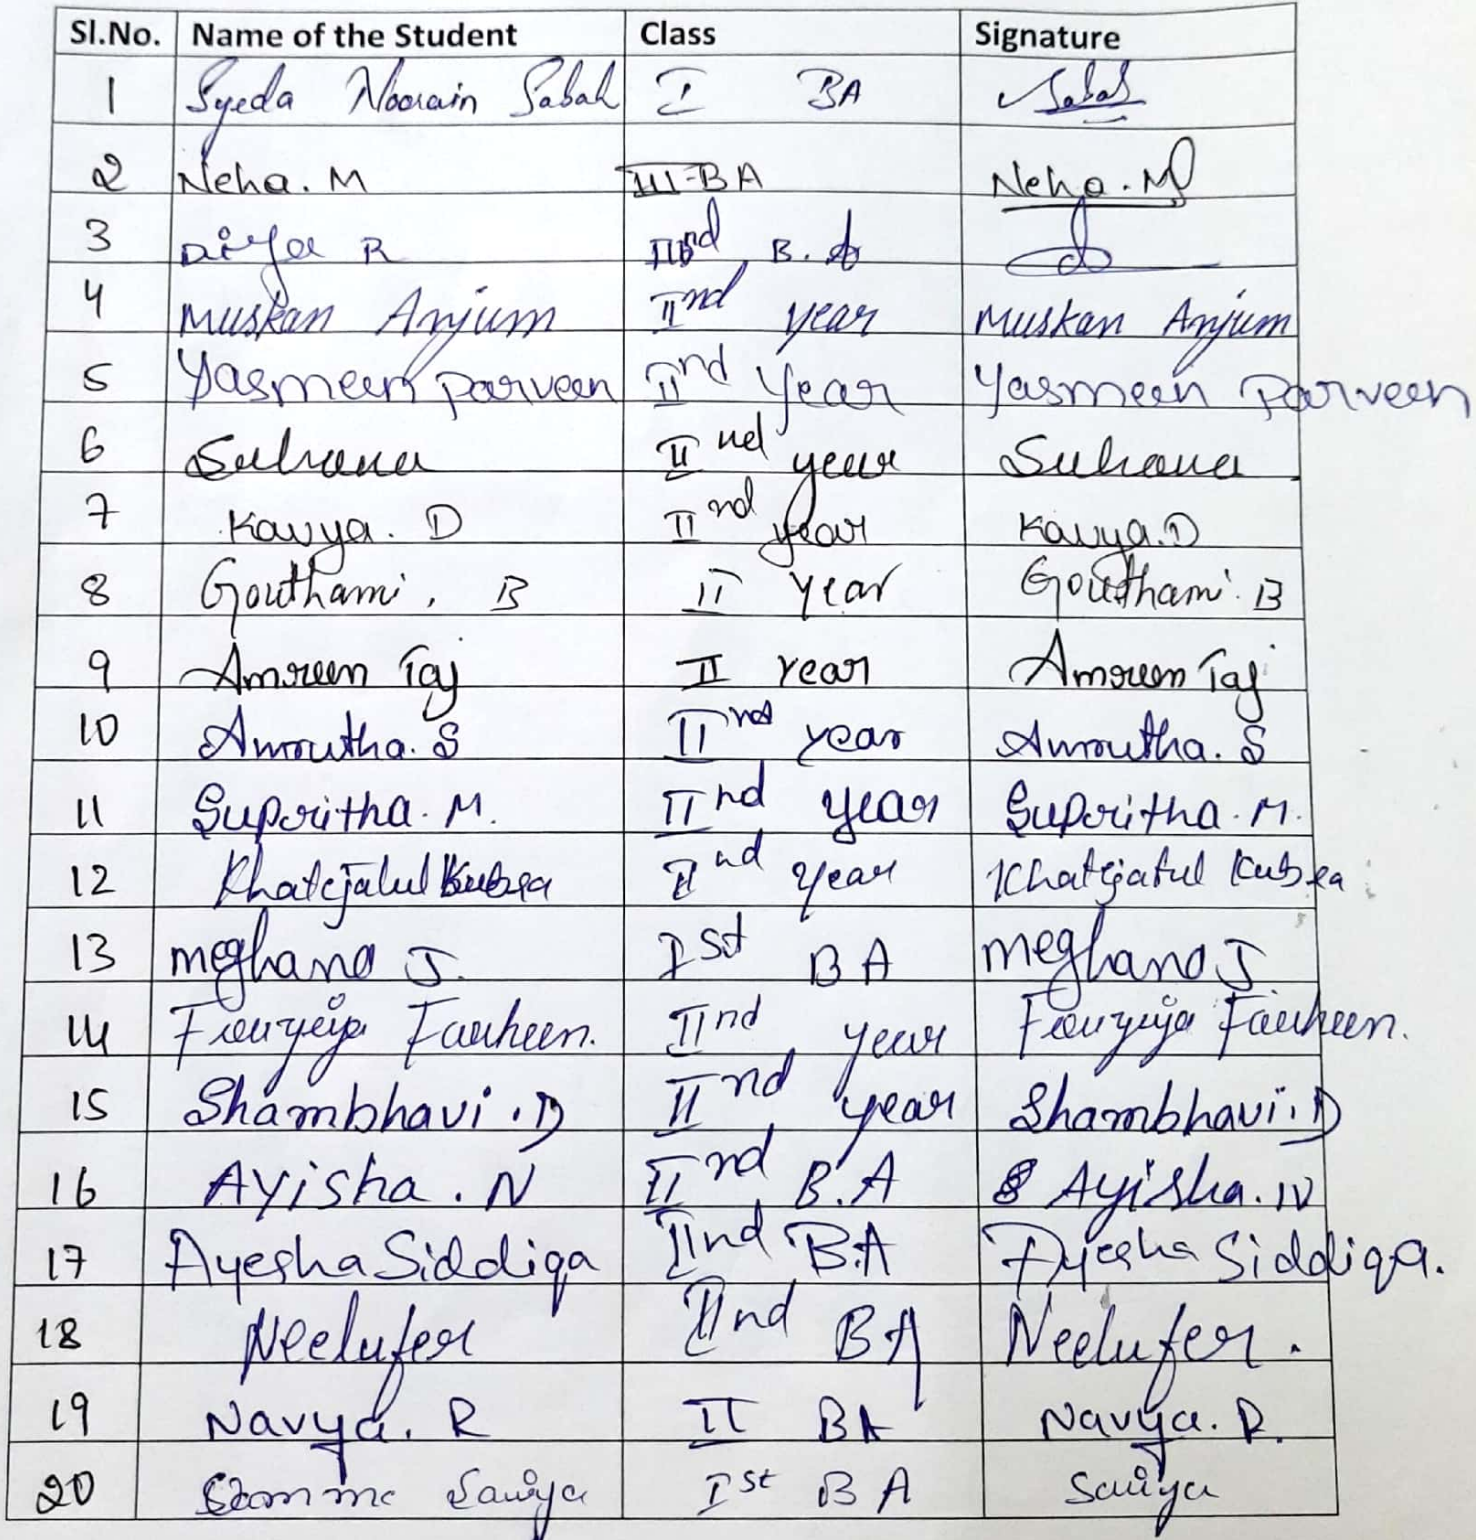 Sl.No. Name of the Student Class Signature
1 Syeda Noorain Sabah I BA Sabah
2 Neha. M III-BA Neha. M
3 Diya R IInd B.A
4 Muskan Anjum IInd year Muskan Anjum
5 Yasmeen parveen IInd Year Yasmeen Parveen
6 Suhana IInd year Suhana
7 Kavya. D IInd year Kavya.D
8 Gouthami. B II Year Gouthami. B
9 Amreen Taj II Year Amreen Taj
10 Amrutha. S IInd year Amrutha. S
11 Supritha. M. IInd year Supritha. M.
12 Khatejatul Kubra IInd year Khatejatul Kubra
13 meghana J. Ist BA meghana J
14 IInd year
15 Shambhavi.D IInd year Shambhavi.D
16 Ayisha. N IInd B.A Ayisha. N
17 Ayesha Siddiqa IInd B.A Ayesha Siddiqa.
18 Neelufer IInd BA Neelufer.
19 Navya. R II BA Navya. R.
20 Saniya Ist BA Saniya